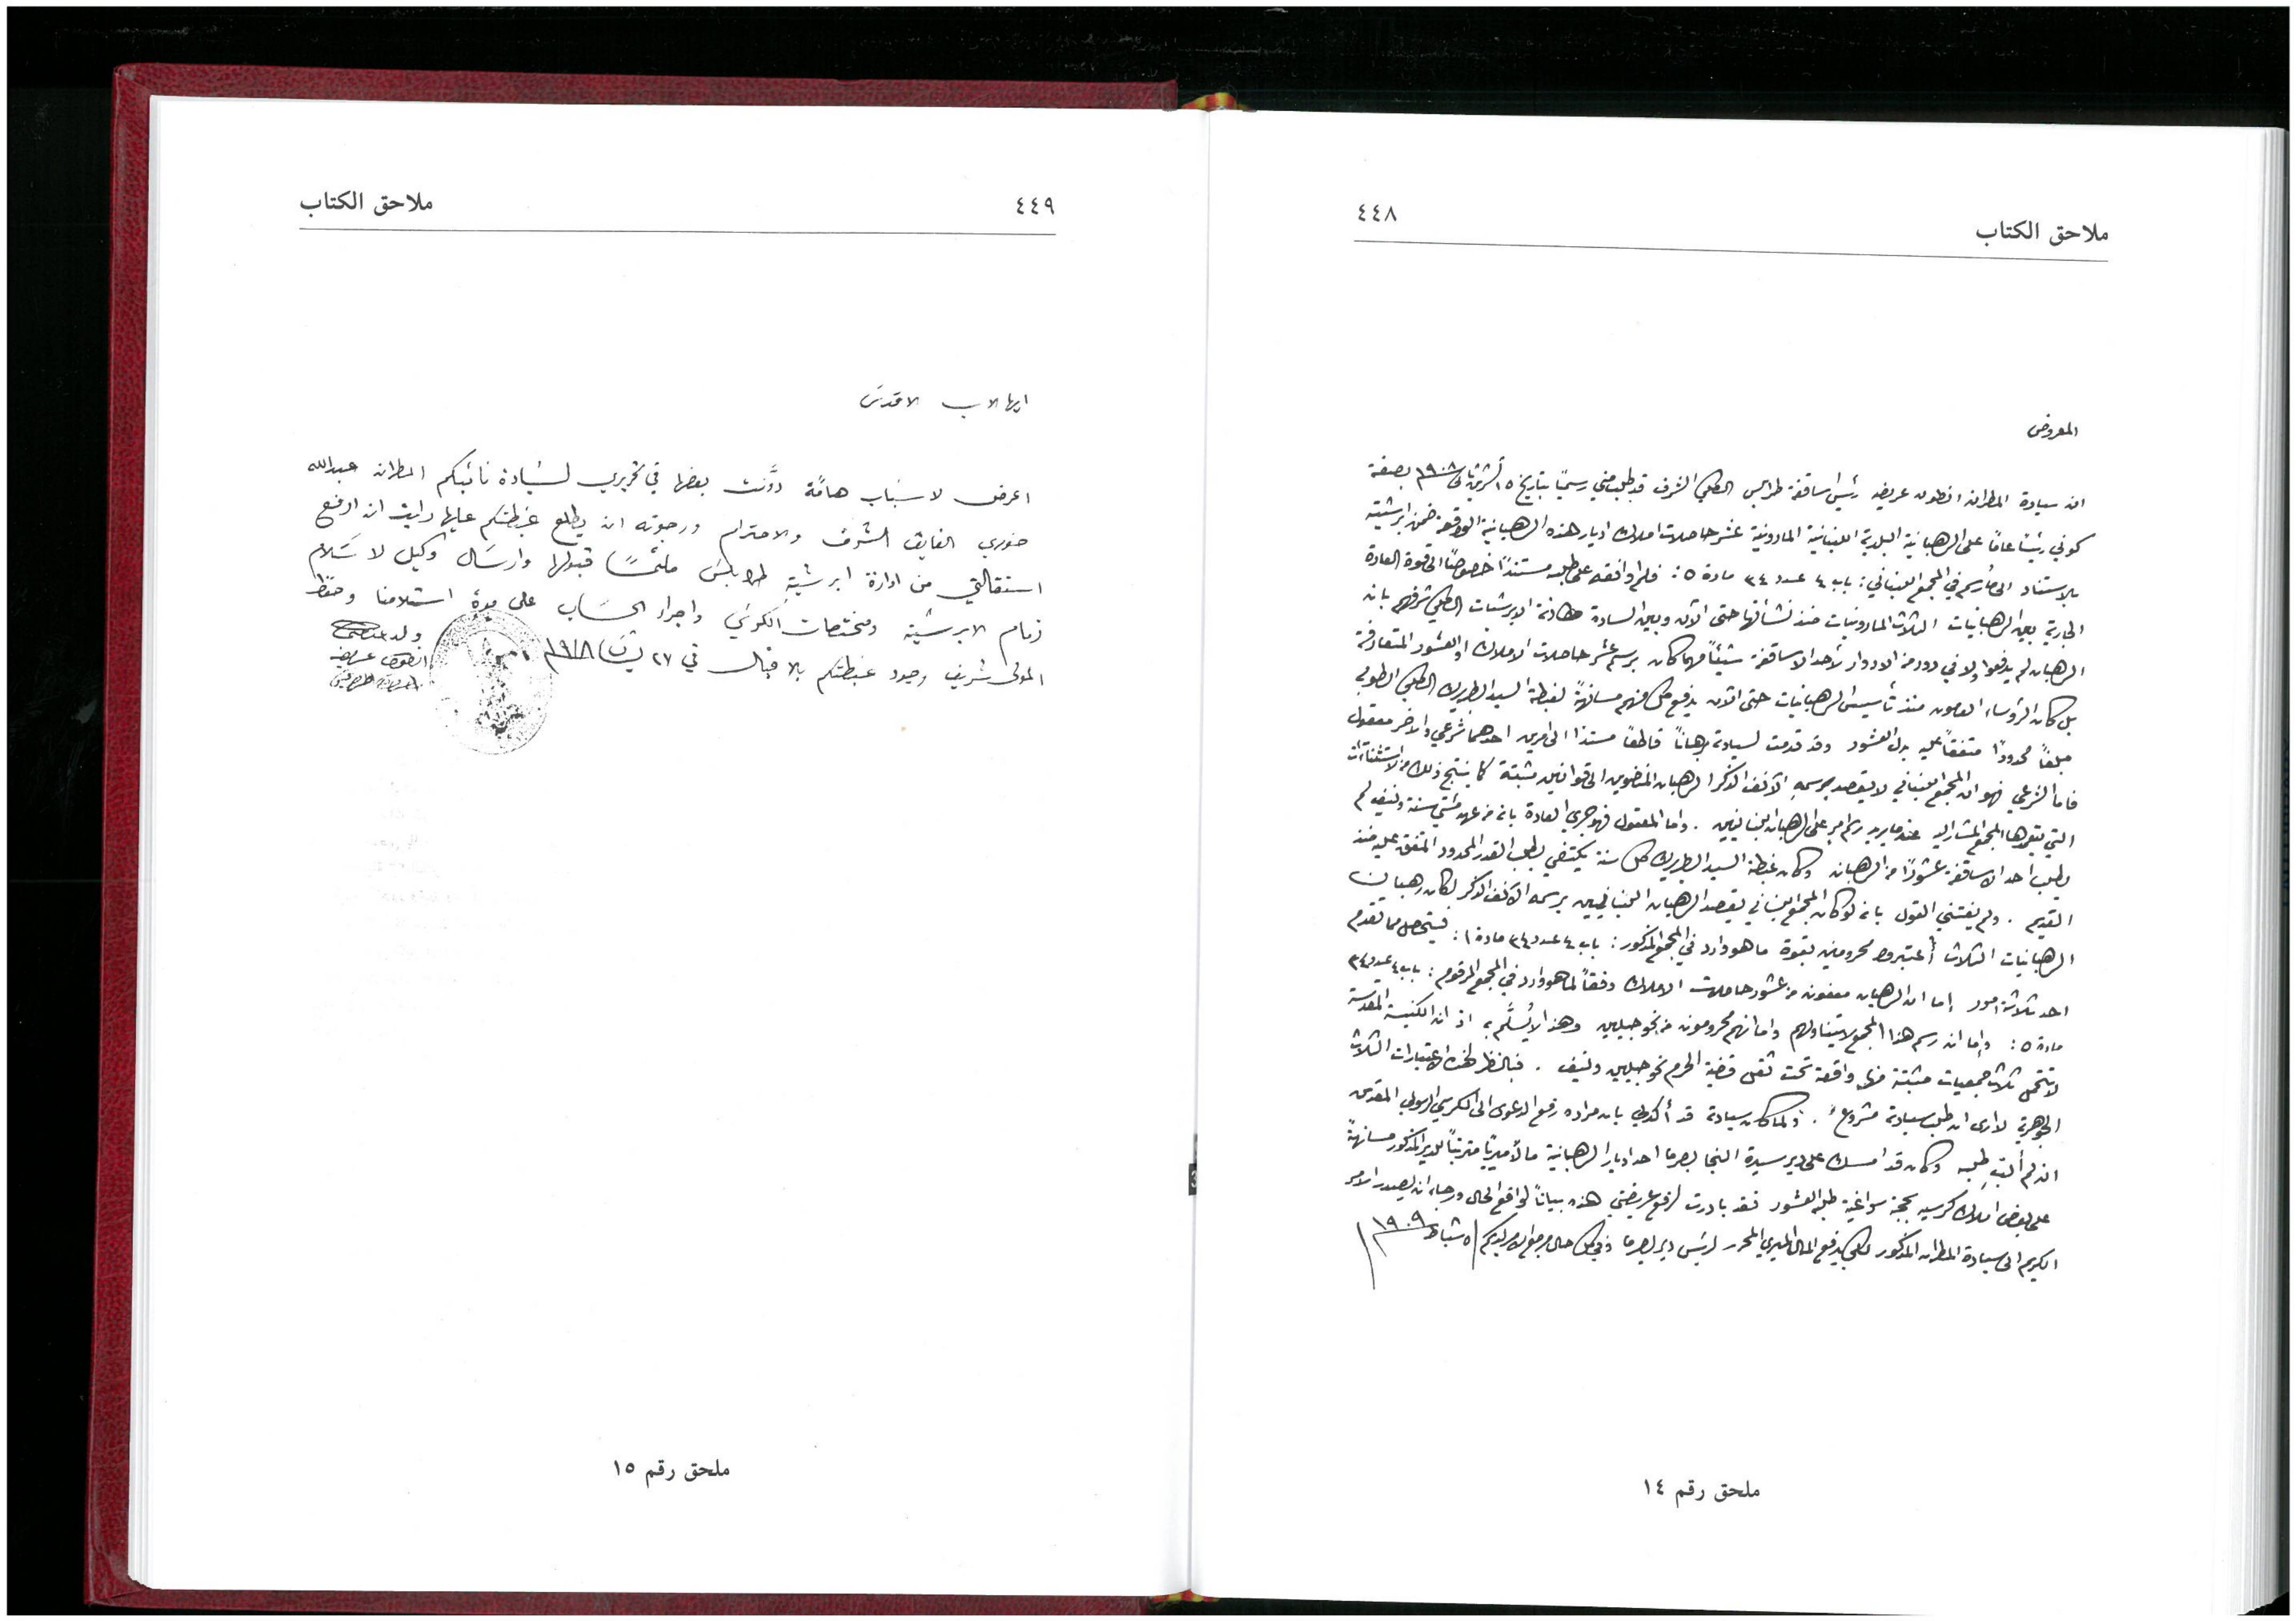 ملاحق الكتاب
٤٤٨
المعروض
ان سيادة المطران انطون عريضه رئيس اساقفة طرابلس الكلي الشرف قد طلب مني رسميًا بتاريخ ١٥ ١٩٠٨ بصفة
كوني رئيسًا عامًا على الرهبانية البلدية اللبنانية المارونية عشر حاصلات املاك اديار هذه الرهبانية الواقعة ضمن ابرشيته
بالاستناد الى مأرسم في المجمع اللبناني: باب ٤ عدد ٣٤ مادة ٥: فلم اوافقه على طلبه مستندًا خصوصًا الى قوة العادة
الجارية بين الرهبانيات الثلاث المارونيات منذ نشأتها حتى الآن وبين السادة مطارنة الابرشيات الكلي شرفهم بان
الرهبان لم يدفعوا ولا في دور من الادوار لأحد الاساقفة شيئًا مهما كان برسم عشر حاصلات الاملاك او العشور المتعارفة
بل كان الرؤساء العامون منذ تأسيس الرهبانيات حتى الآن يدفع كل منهم مسانهةً لغبطة السيد البطريرك الكلي الطوبى
مبلغًا محدودًا متفقًا عليه بدل العشور وقد قدمت لسيادته برهانًا قاطعًا مستندا الى امرين احدهما شرعي والاخر معقول
فاما الشرعي فهو ان المجمع اللبناني لا يقصد برسمه الآنف الذكر الرهبان المنضوين الى قوانين مثبتة كما ينتج ذلك من الاستثناآت
التي يتعمدها المجمع المشار اليه عندما يريد رسم امر على الرهبان اللبنانيين . واما المعقول فهو جري العادة بانه من عهد مئتي سنة ونيف لم
يطلب احد الاساقفة عشورًا من الرهبان وكان غبطة السيد البطريرك كل سنة يكتفي بطلب القدر المحدود المتفق عليه منذ
القديم . ولم يفتني القول بانه لو كان المجمع اللبناني يقصد الرهبان اللبنانيين برسمه الآنف الذكر لكان رهبان
الرهبانيات الثلاث أُعتبروا محرومين بقوة ما هو وارد في المجمع المذكور: باب ٤ عدد ٣٤ مادة ١: فيتحصل مما تقدم
احد ثلاثة امور إما ان الرهبان معفون من عشور حاصلات الاملاك وفقًا لما هو وارد في المجمع المرقوم: باب ٤ عدد ٣٤
مادة ٥: وإما ان رسم هذا المجمع لا يتناولهم واما انهم محرومون من نحو جيلين وهذا لا يُسلَّم به اذ ان الكنيسة المقدسة
لا تتحمل ثلاث جمعيات مثبتة منها واقعة تحت ثقل قضية الحرم نحو جيلين ونيف . فبالنظر لهذه الاعتبارات الثلاث
الجوهرية لا ارى ان طلب سيادته مشروع . ولما كان سيادته قد أكد لي بان مراده رفع الدعوى الى الكرسي الرسولي المقدس
ان لم ألبّ طلبه وكان قد امسك على دير سيدة النجا بصرما احد اديار الرهبانية مالًا ميريًا مترتبًا للدير المذكور مسانهةً
على بعض املاك كرسيه بحجة طلبه العشور فقد بادرت لرفع عريضتي هذه بيانًا لواقع الحال ورجاء ان يصدر الامر
الكريم الى سيادة المطران المذكور لكي يدفع المال الميري المحرر لرئيس دير بصرما وفي كل حال مرجع الامر لديكم ٥ شباط ١٩٠٩
ملحق رقم ١٤
٤٤٩
ملاحق الكتاب
ايها الاب الاقدس
اعرض لاسباب هامَّة دوَّنت بعضها في تحريري لسيادة نائبكم المطران عبدالله
خوري الفايق الشرف والاحترام ورجوته ان يطلع غبطتكم عليها رايت ان ارفع
استقالتي من ادارة ابرشية طرابلس ملتمسًا قبولها وارسال وكيل لاستلام
زمام الابرشية ومختصات الكرسي واجراء الحساب على مدة استلامنا وحفظ
المولى شريف وجود غبطتكم بالاقبال في ٢٧
ولد
انطون عريضه
ملحق رقم ١٥